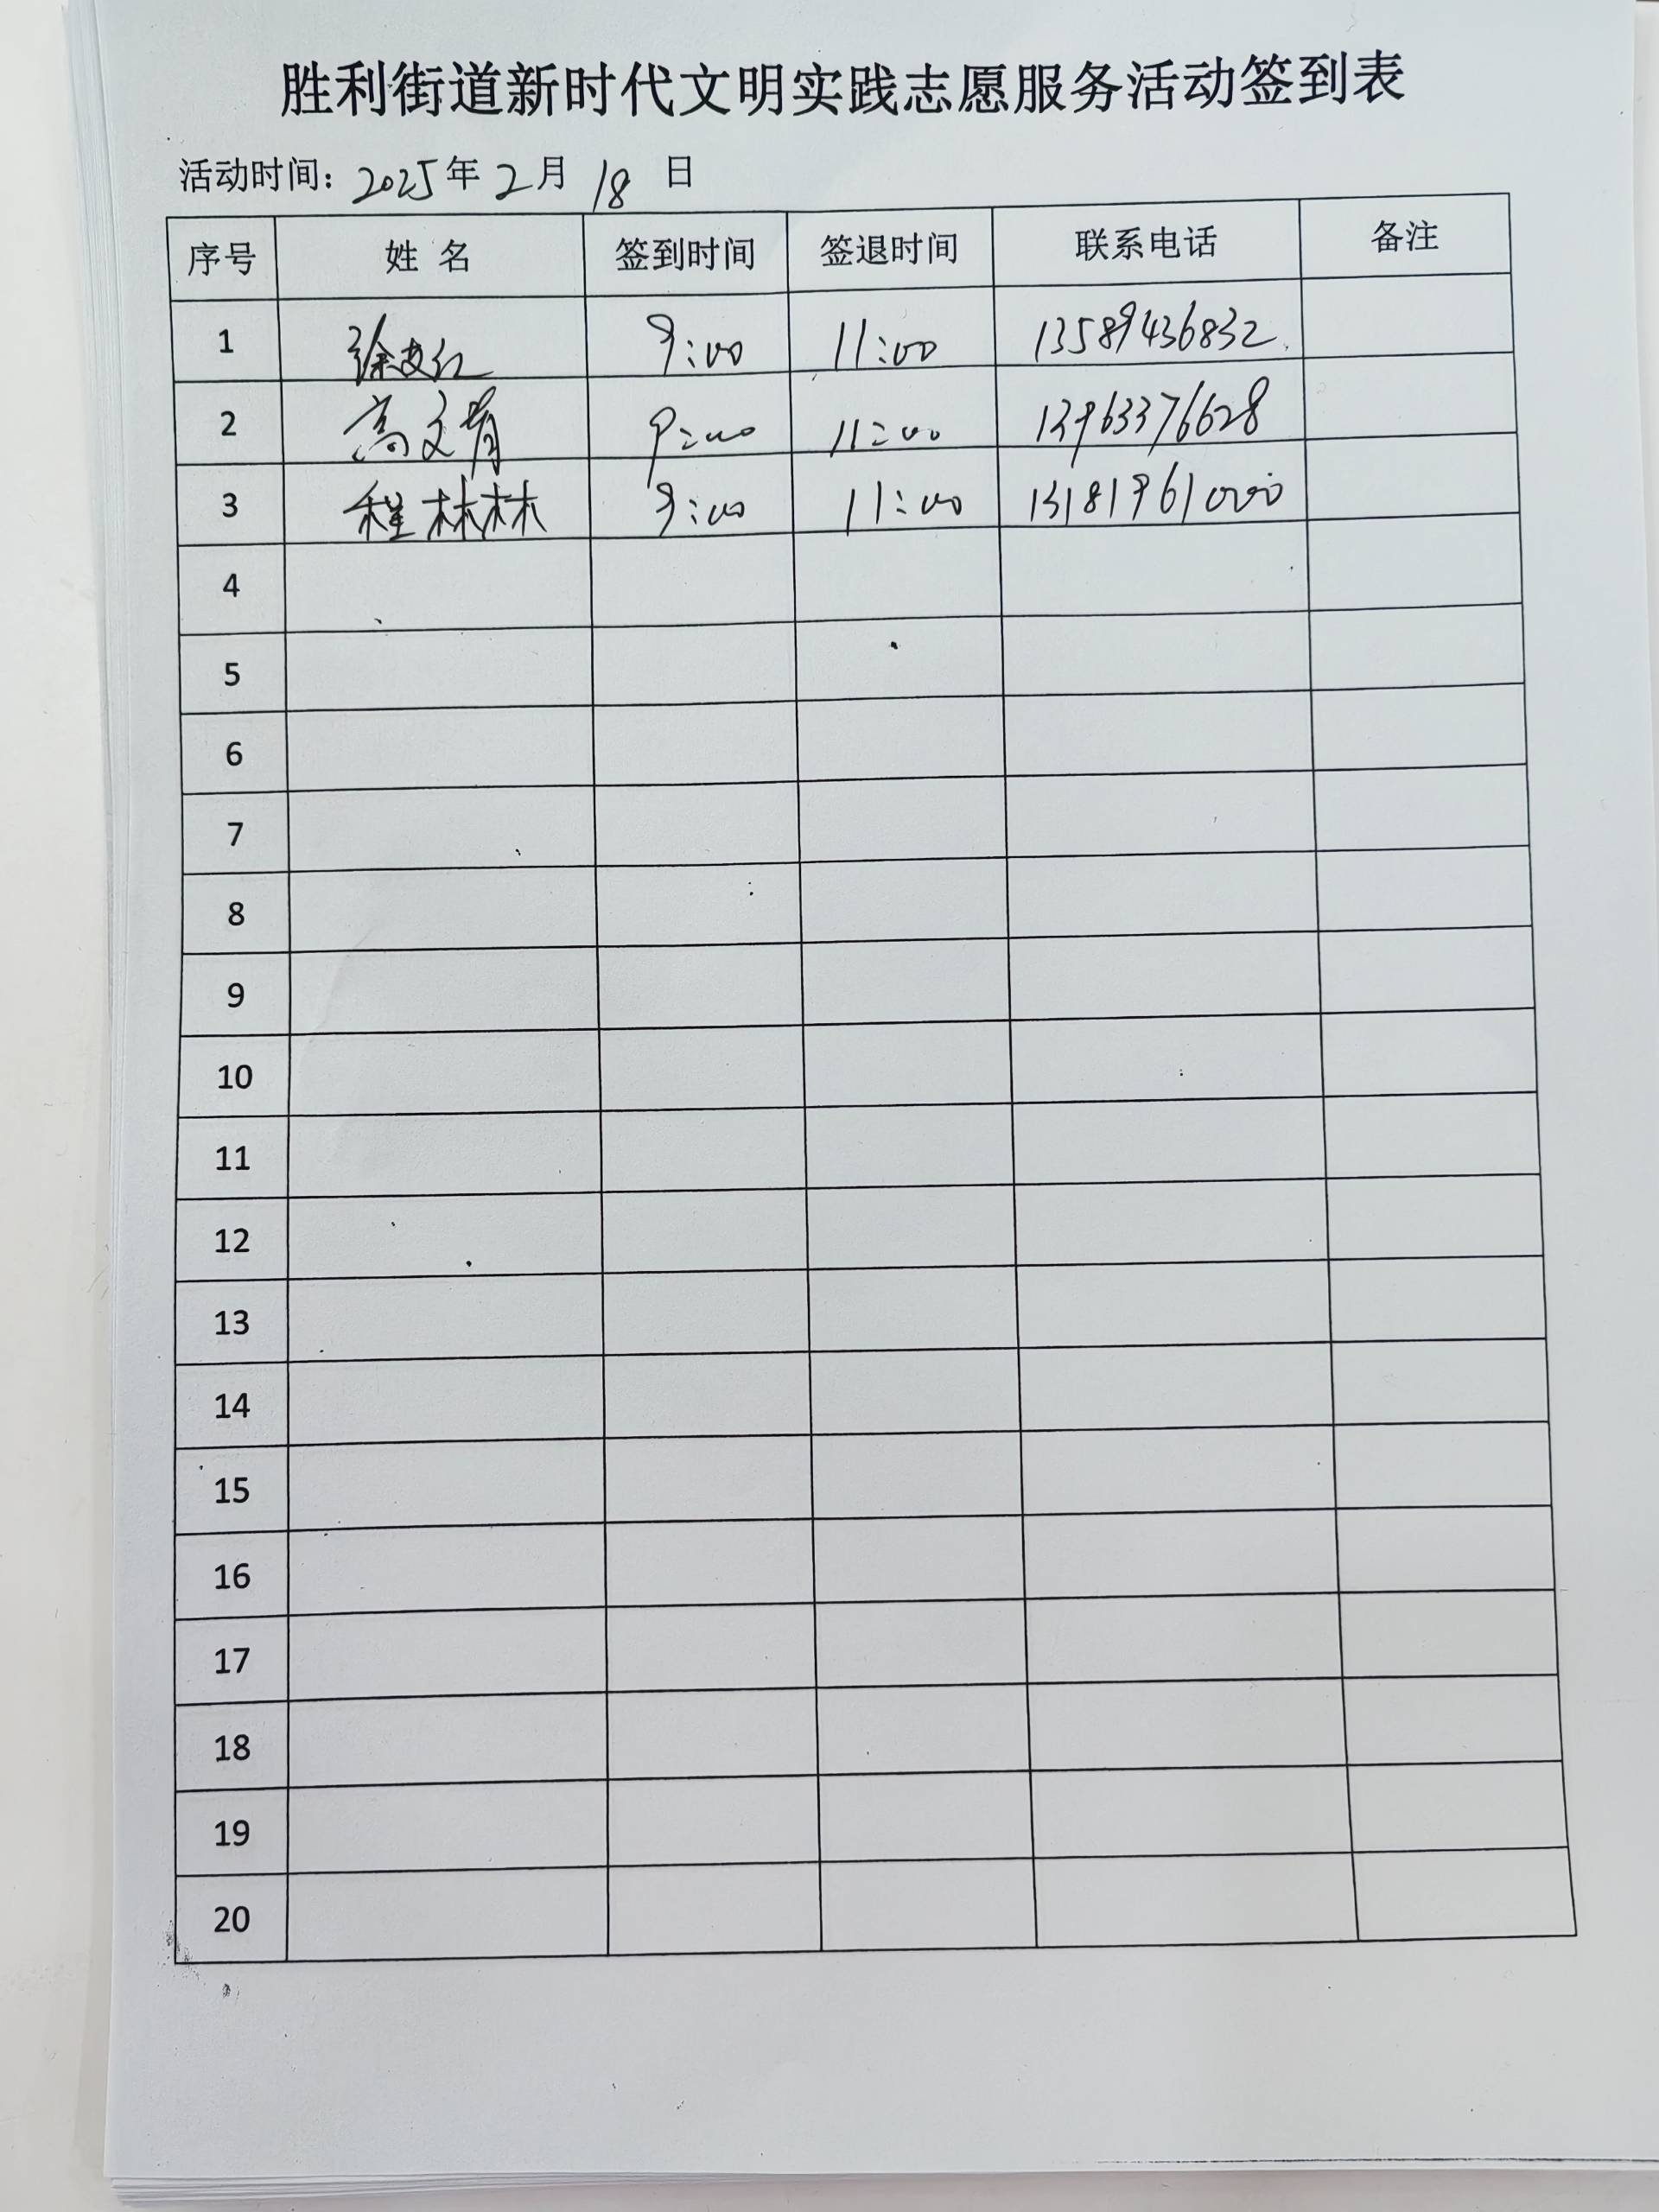 胜利街道新时代文明实践志愿服务活动签到表
活动时间: 2025年 2月 18 日
序号 姓 名 签到时间 签退时间 联系电话 备注
1 9:00 11:00 13589436832
2 高文青 9:00 11:00 13963376628
3 程林林 9:00 11:00 13181961000
4
5
6
7
8
9
10
11
12
13
14
15
16
17
18
19
20